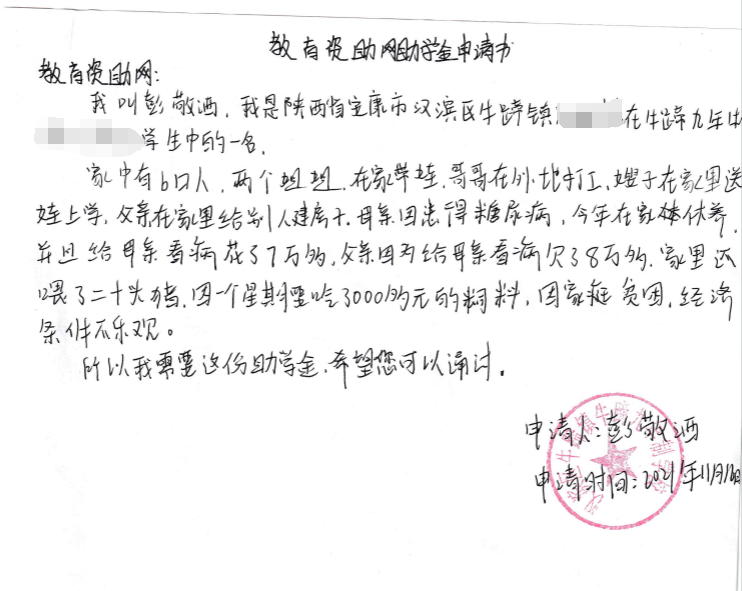 教育资助网助学金申请书
教育资助网:
我叫彭敬洒,我是陕西省安康市汉滨区牛蹄镇 在牛蹄九年制
学生中的一名,
家中有6口人,两个姐姐,在家带娃,哥哥在外地打工,嫂子在家里送
娃上学,父亲在家里给别人建房子.母亲因患得糖尿病,今年在家休养,
并且给母亲看病花了7万多,父亲因为给母亲看病欠了8万多.家里还
喂了二十头猪,因一个星期要吃3000多元的饲料,因家庭贫困,经济
条件不乐观。
所以我需要这份助学金,希望您可以通过。
申请人:彭敬洒
申请时间:2021年11月16日